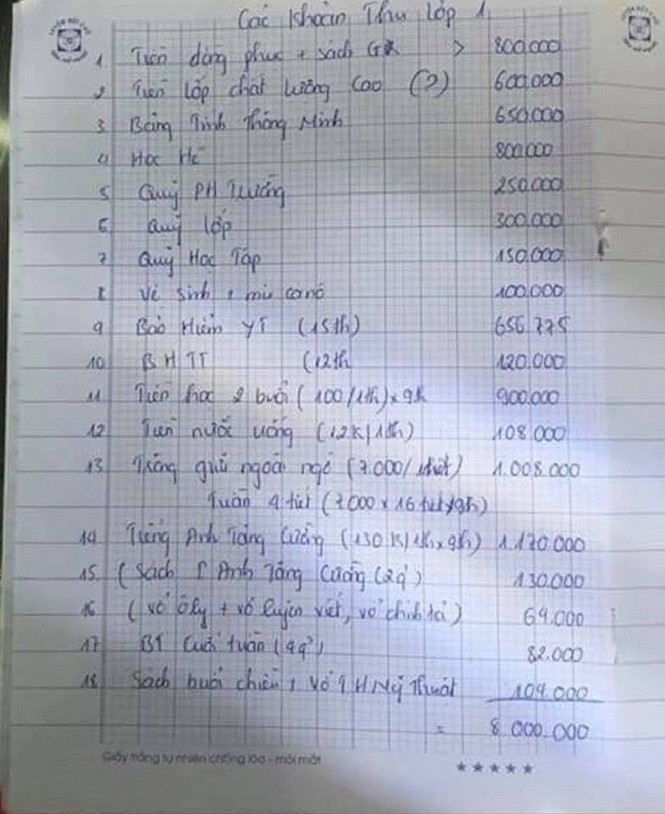 Các khoản Thu lớp 1
1 Tiền đồng phục + sách GK > 800.000
2 Tiền lớp chất lượng cao (2) 600.000
3 Bảng Tính Thông Minh 650.000
4 Học Hè 800.000
5 Quỹ PH Trường 250.000
6 Quỹ lớp 300.000
7 Quỹ Học Tập 150.000
8 Vệ sinh + mũ ca nô 100.000
9 Bảo Hiểm YT (15th) 656.775
10 BHTT (12th 120.000
11 Tiền học 2 buổi (100/1th) x 9th 900.000
12 Tiền nước uống (12K/1th) 108.000
13 Trông giữ ngoài ngờ (7.000/tiết) 1.008.000
Tuần 4 tiết (7.000 x 16 tiết x 9th)
14 Tiếng Anh Tăng Cường (130K/1th x 9th) 1.170.000
15 (Sách T Anh Tăng Cường (2q) 130.000
16 (vở ôly + vở luyện viết, vở chính tả) 69.000
17 BT Cuối tuần (4q) 82.000
18 Sách buổi chiều + vở Mỹ Thuật 104.000
= 8.000.000
Giấy trắng tự nhiên chống lóa - mỏi mắt
★★★★★